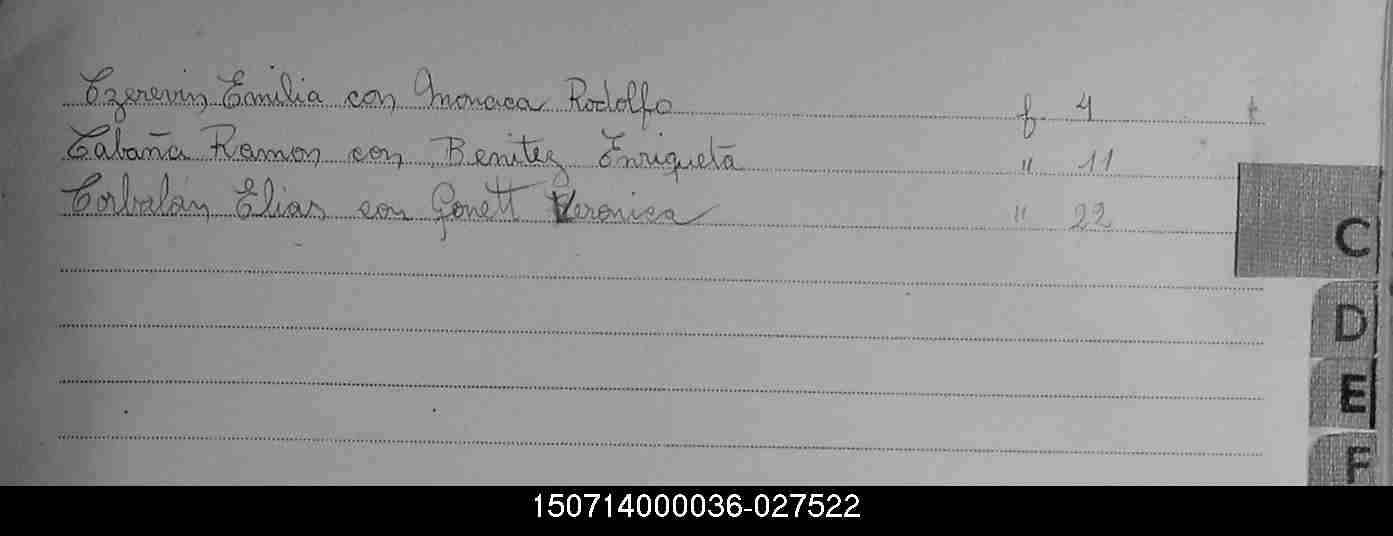 Czerevin, Emilia con Monaca Rodolfo f 4
Cabaña Ramon con Benitez Enriqueta " 11
Corbalán Elias con Gonett Veronica " 22
C
D
E
F
150714000036-027522